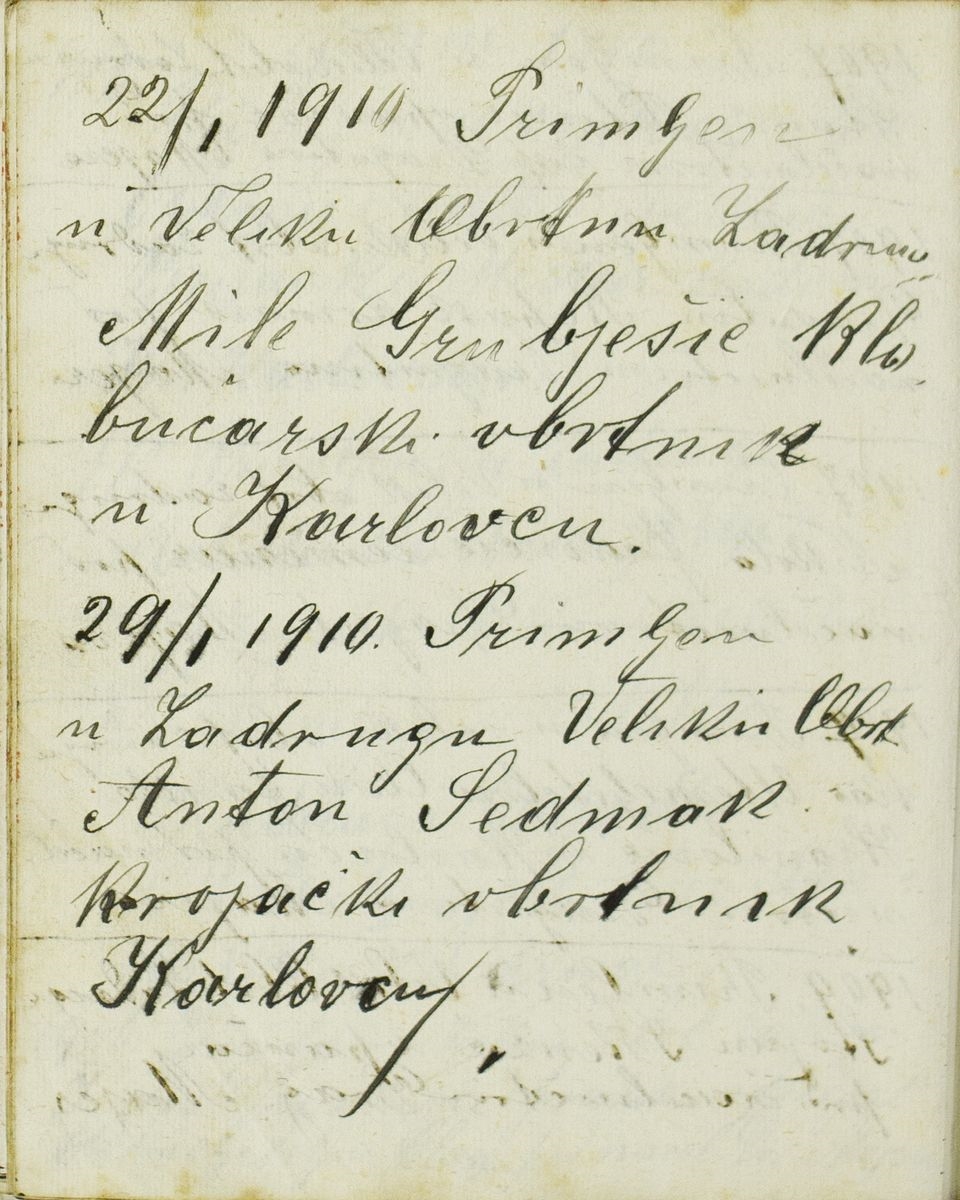 22/1 1910 Primljen
u Veliku Obrtnu Zadrugu
Mile Grubješić klo
bučarski obrtnik
u Karlovcu.
29/1 1910. Primljen
u Zadrugu Veliku Obrt
Anton Sedmak
krojački obrtnik
Karlovcu